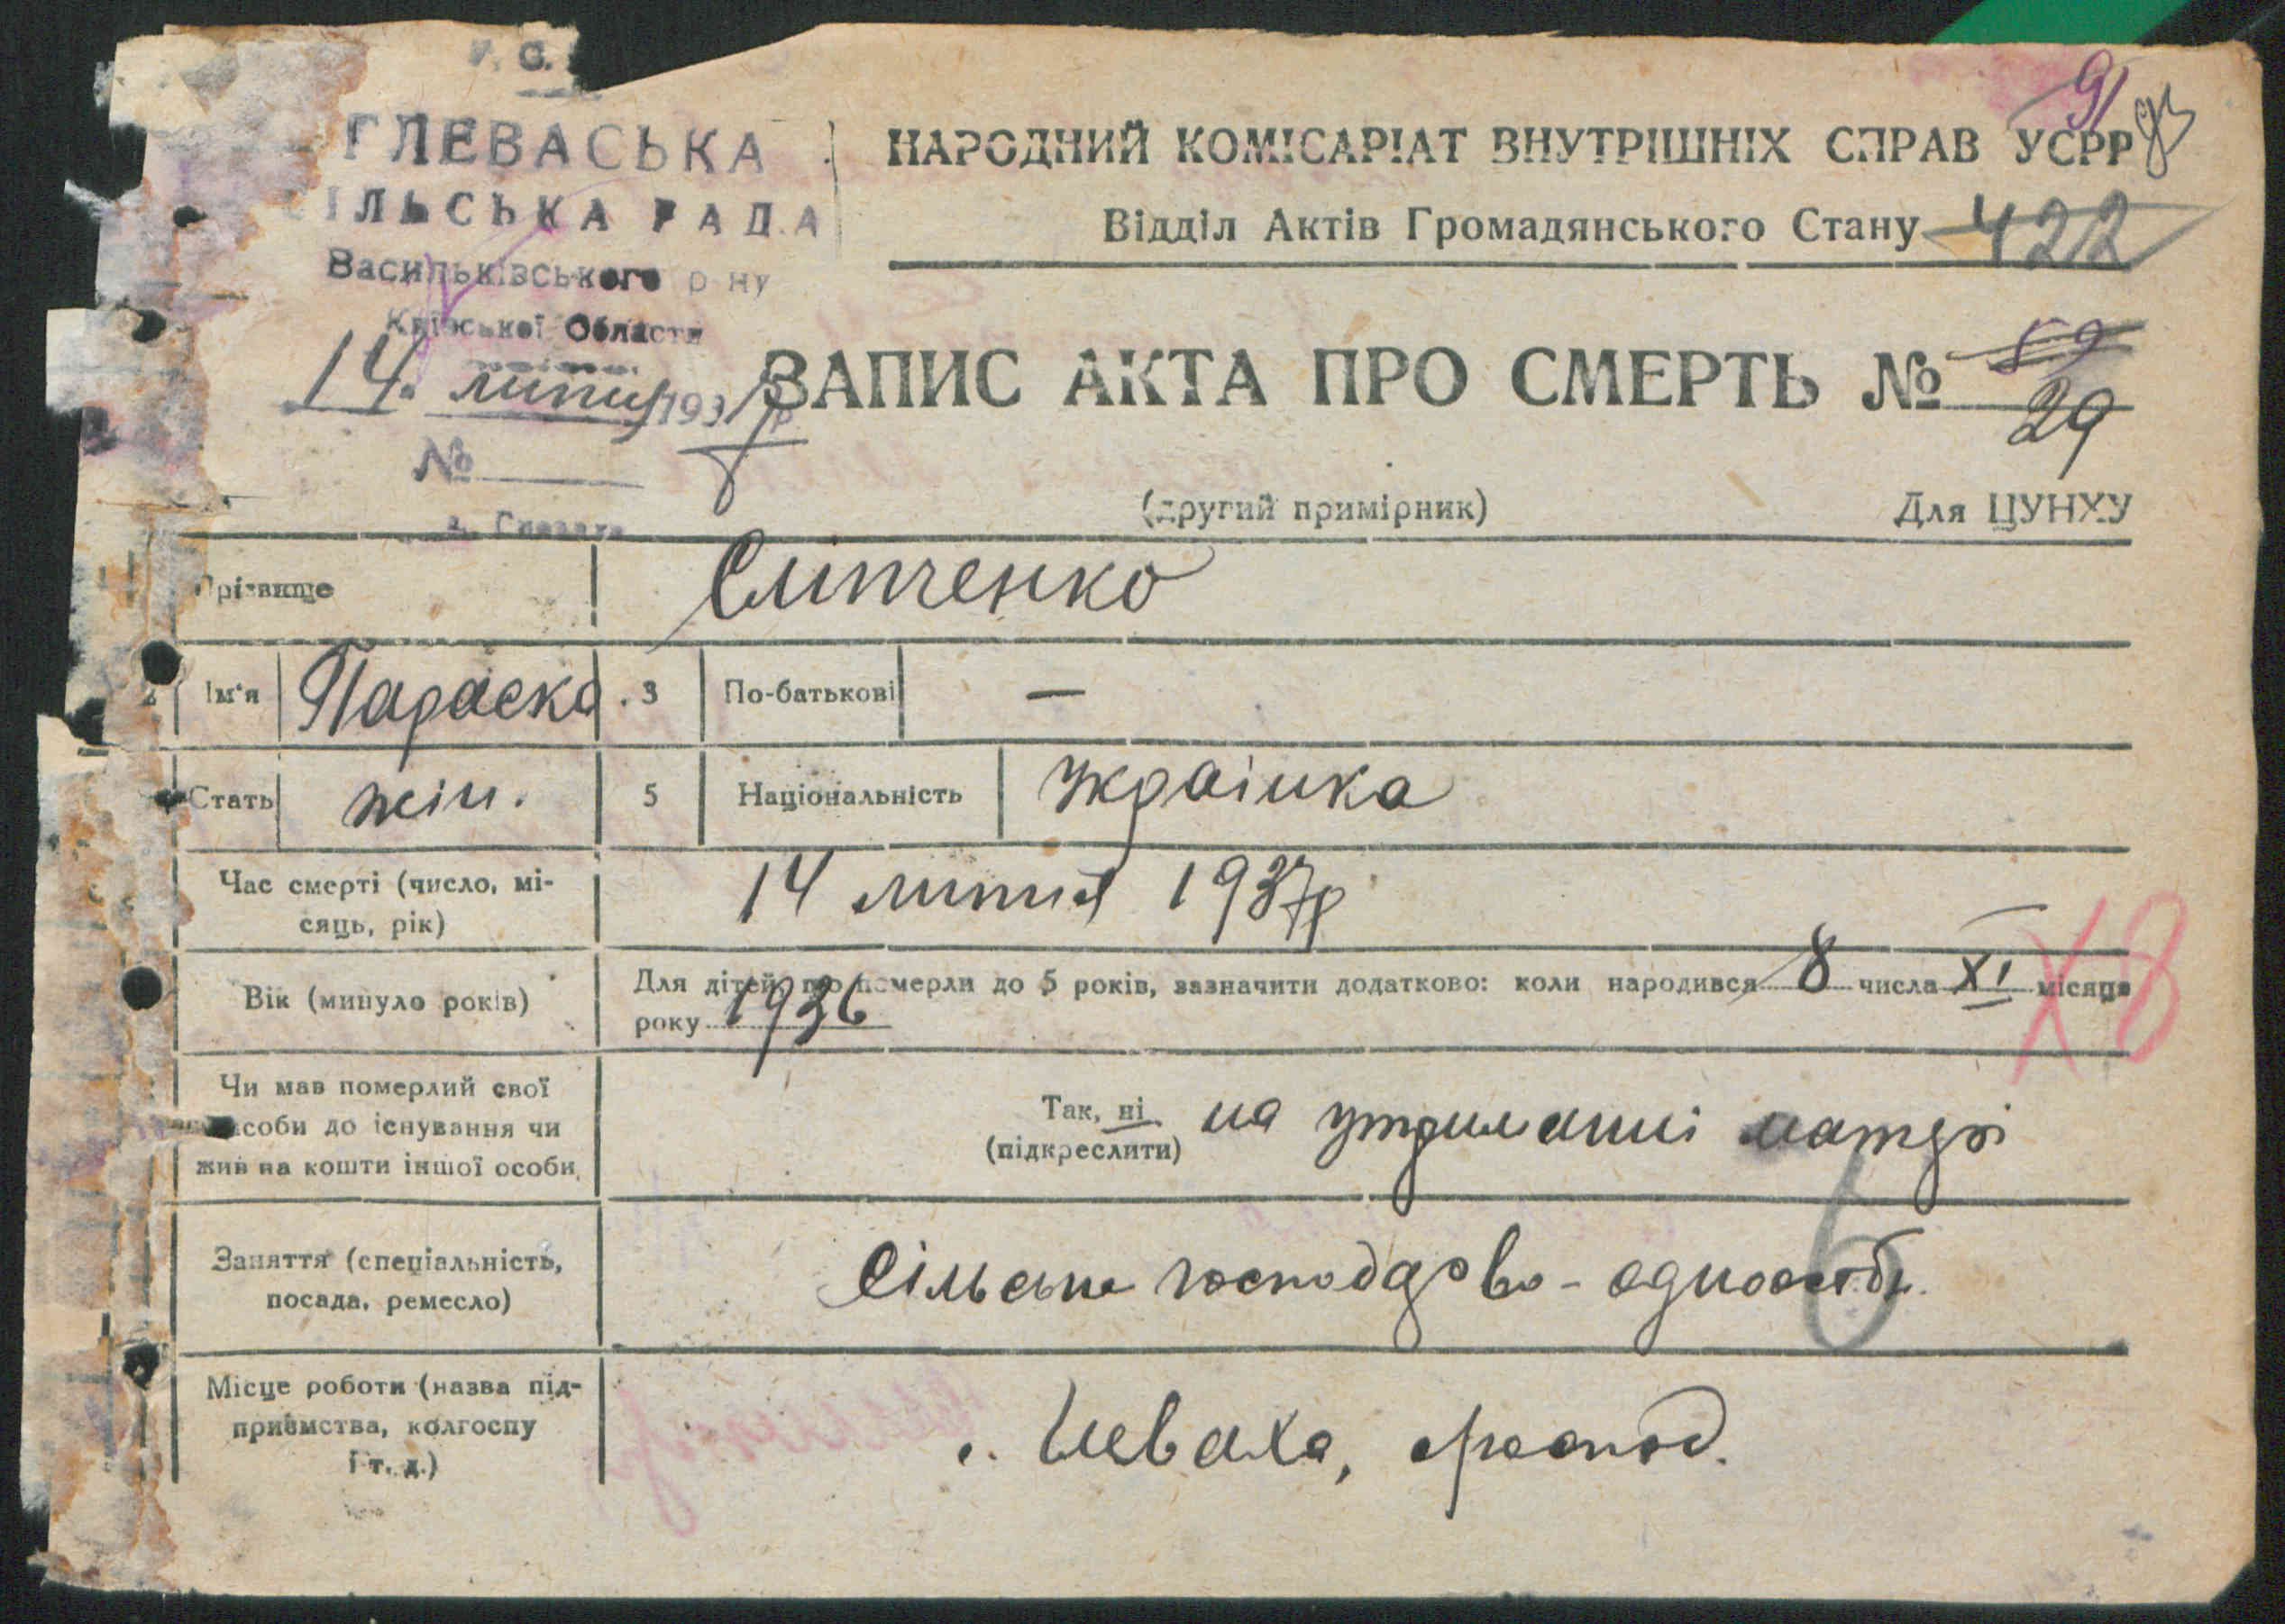 У. С.
ГЛЕВАСЬКА
ІЛЬСЬКА РАДА
Васильківського р-ну
Київської Области
14. липня 1937р
№
с. Глеваха
91
93
НАРОДНИЙ КОМІСАРІАТ ВНУТРІШНІХ СПРАВ УСРР
Відділ Актів Громадянського Стану 422
ЗАПИС АКТА ПРО СМЕРТЬ № 59
29
(другий примірник) Для ЦУНХУ
Прізвище Єлітченко
2 Ім'я Параска . 3 По-батькові —
Стать жін. 5 Національність Українка
Час смерті (число, мі-
сяць, рік) 14 липня 1937р
Вік (минуло років) Для дітей, що померли до 5 років, зазначити додатково: коли народився 8 числа XI місяця
року 1936
Чи мав померлий свої
засоби до існування чи
жив на кошти іншої особи
Так, ні на утриманні матері
(підкреслити)
Заняття (спеціальність,
посада, ремесло) Сільське господарство - одноособн.
6
Місце роботи (назва під-
приємства, колгоспу
і т. д.) с. Глеваха, господ.